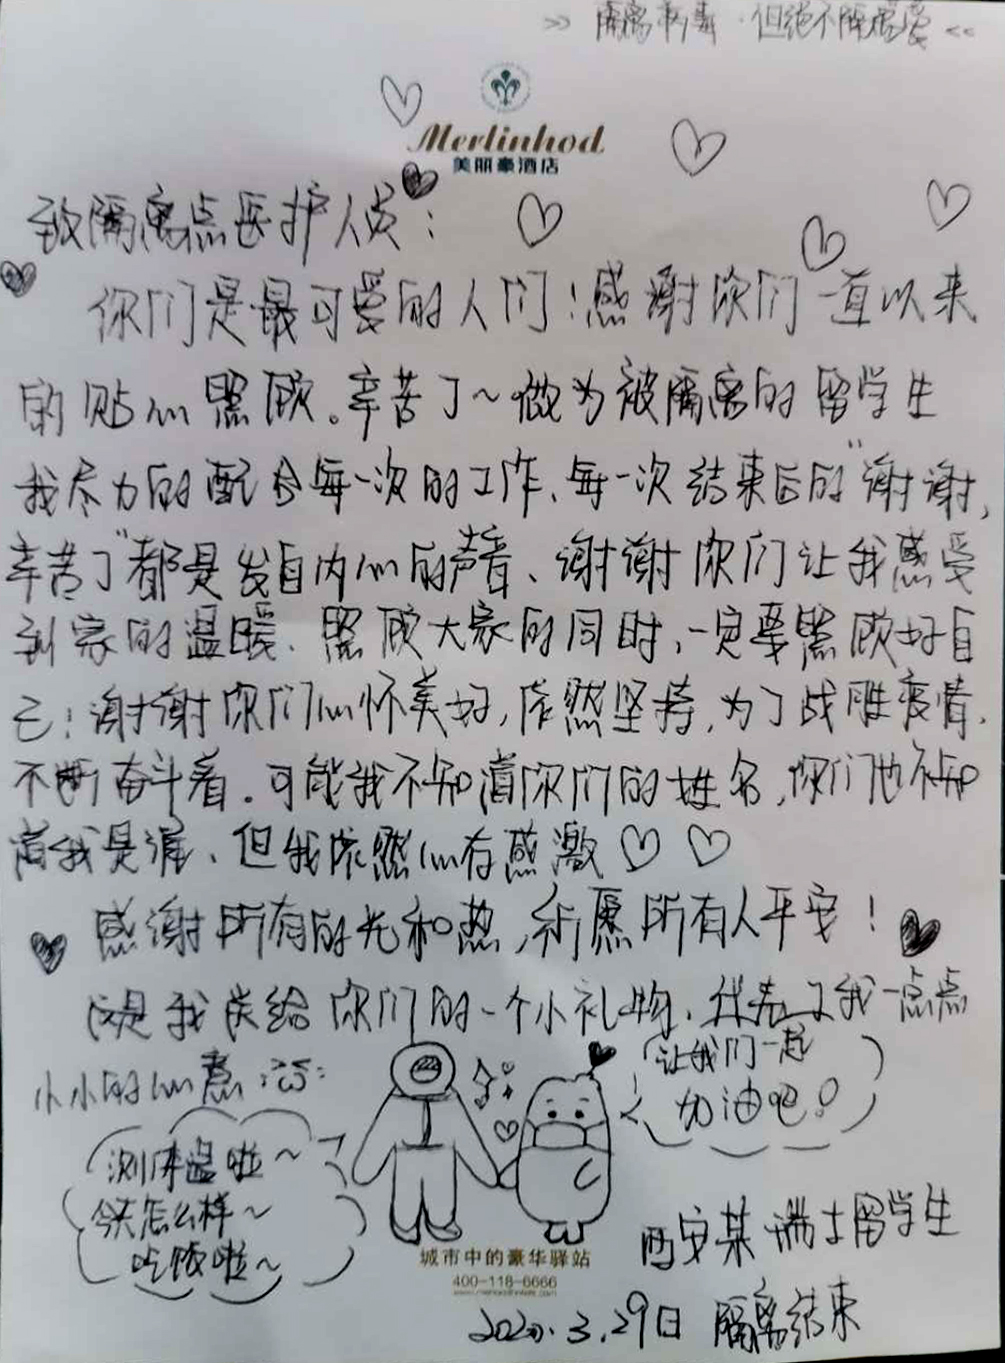 >> 隔离病毒.但绝不隔离爱 <<
Merlinhod
美丽豪酒店
致隔离点医护人员：
你们是最可爱的人们！感谢你们一直以来
的贴心照顾。辛苦了～做为被隔离的留学生
我尽力的配合每一次的工作、每一次结束后的“谢谢,
辛苦了”都是发自内心的声音、谢谢你们让我感受
到家的温暖、照顾大家的同时,一定要照顾好自
己！谢谢你们心怀美好,依然坚持,为了战胜疫情,
不断奋斗着。可能我不知道你们的姓名,你们也不知
道我是谁、但我依然心存感激♡ ♡
感谢所有的光和热,祈愿所有人平安！
这是我送给你们的一个小礼物,代表了我一点点
小小的心意
让我们一起
加油吧！
测体温啦～
今天怎么样～
吃饭啦～
西安某瑞士留学生
城市中的豪华驿站
400-118-6666
2020.3.29日 隔离结束